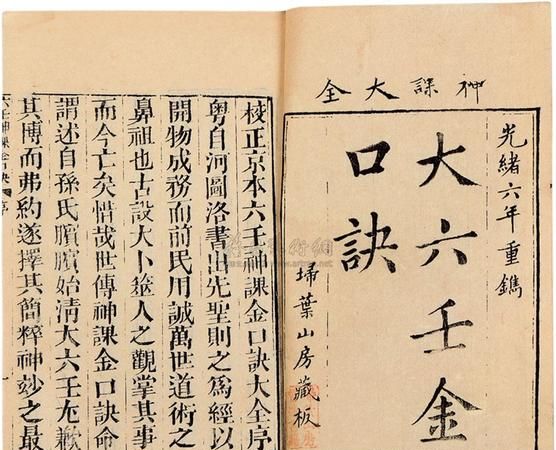 神課大全
光緒六年重鐫
大六壬金
口訣
埽葉山房藏板
校正京本六壬神課金口訣大全序
粵自河圖洛書出先聖則之為經以
開物成務而前民用誠萬世道術之
鼻祖也古設大卜筮人之觀掌其事
而今亡矣惜哉世傳神課金口訣命
謂述自孫氏臏臏始清大六壬尤歉
其博而弗約遂擇其簡粹神妙之最
六壬神課金口訣 序